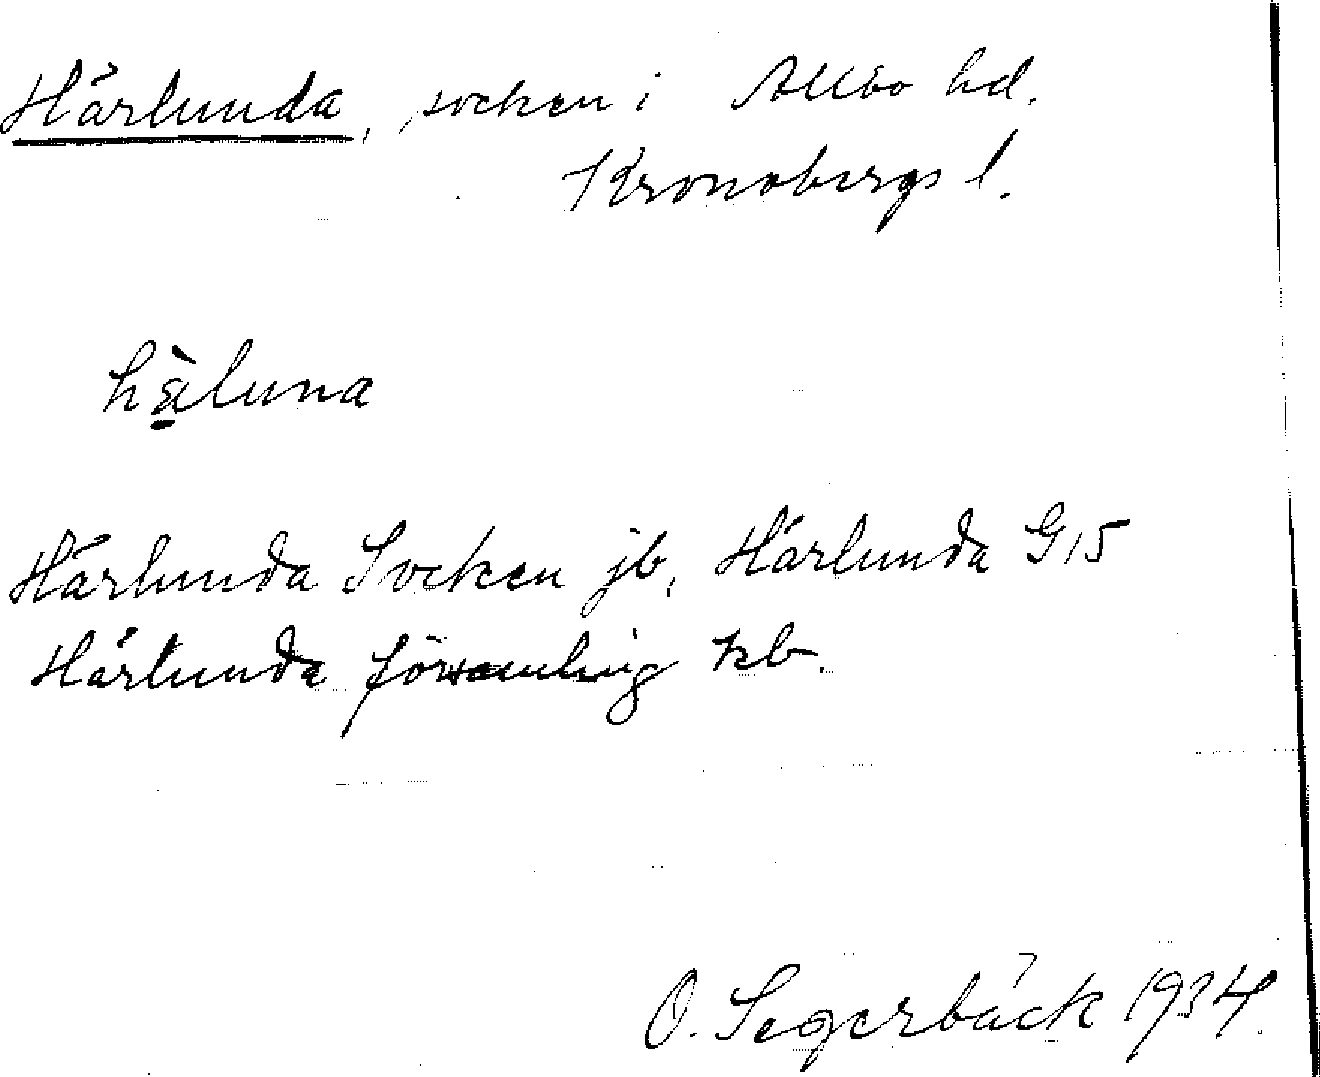 Härlunda, socken i Allbo hd.
Kronobergs l.
hä̀luna
Härlunda Socken jb, Härlunda G15
Härlunda församling kb.
O. Segerbäck 1934.